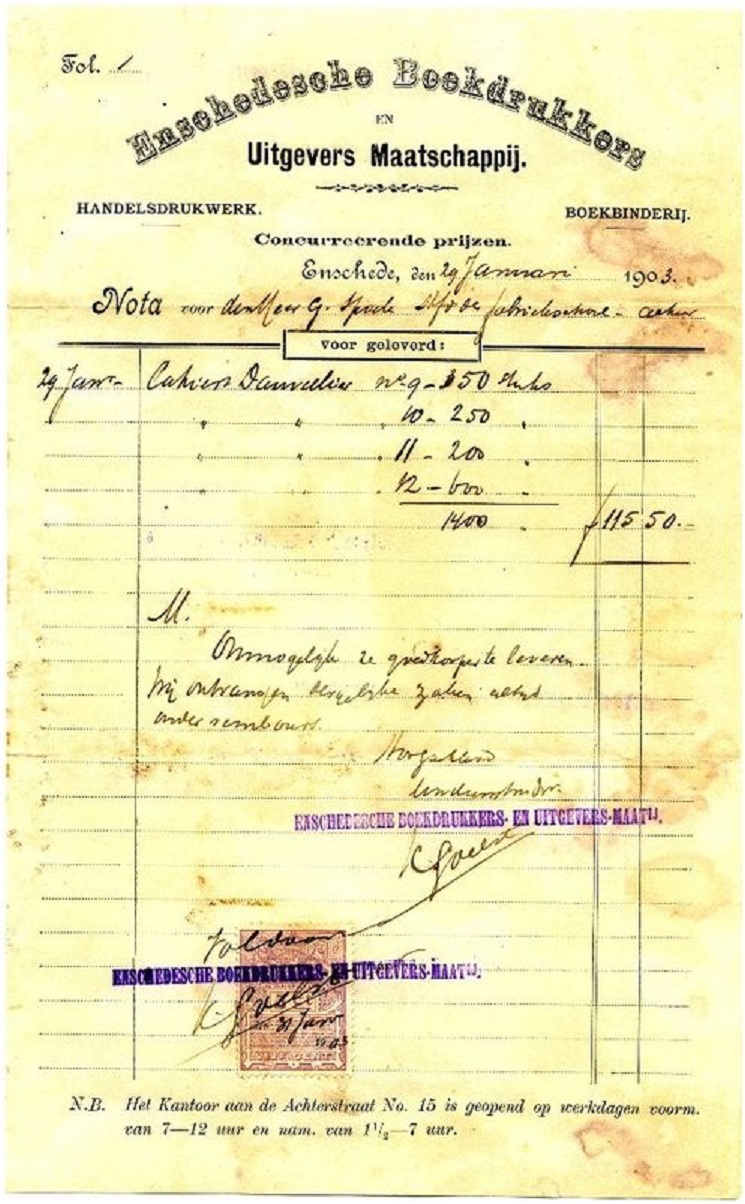 Fol. 1
Enschedesche Boekdrukkers
EN
Uitgevers Maatschappij.
HANDELSDRUKWERK. BOEKBINDERIJ.
Concurreerende prijzen.
Enschede, den 29 Januari 1903.
Nota voor den Heer G. fabriekschool -
voor geleverd:
29 Janr- Cahiers no 9 - 350 stuks
" " " 10 - 250 "
" " " 11 - 200 "
" " " 12 - 600 "
1400 " f 115 50.-
M.
Onmogelijk ze goedkooper te leveren.
Wij ontvangen dergelijke zaken altijd
onder rembours.
Hoogachtend
ENSCHEDESCHE BOEKDRUKKERS- EN UITGEVERS-MAATIJ.
Voldaan
ENSCHEDESCHE BOEKDRUKKERS- EN UITGEVERS-MAATIJ.
31 Janr
1903
VIJF CENT
N.B. Het Kantoor aan de Achterstraat No. 15 is geopend op werkdagen voorm.
van 7—12 uur en nam. van 1 1/2—7 uur.